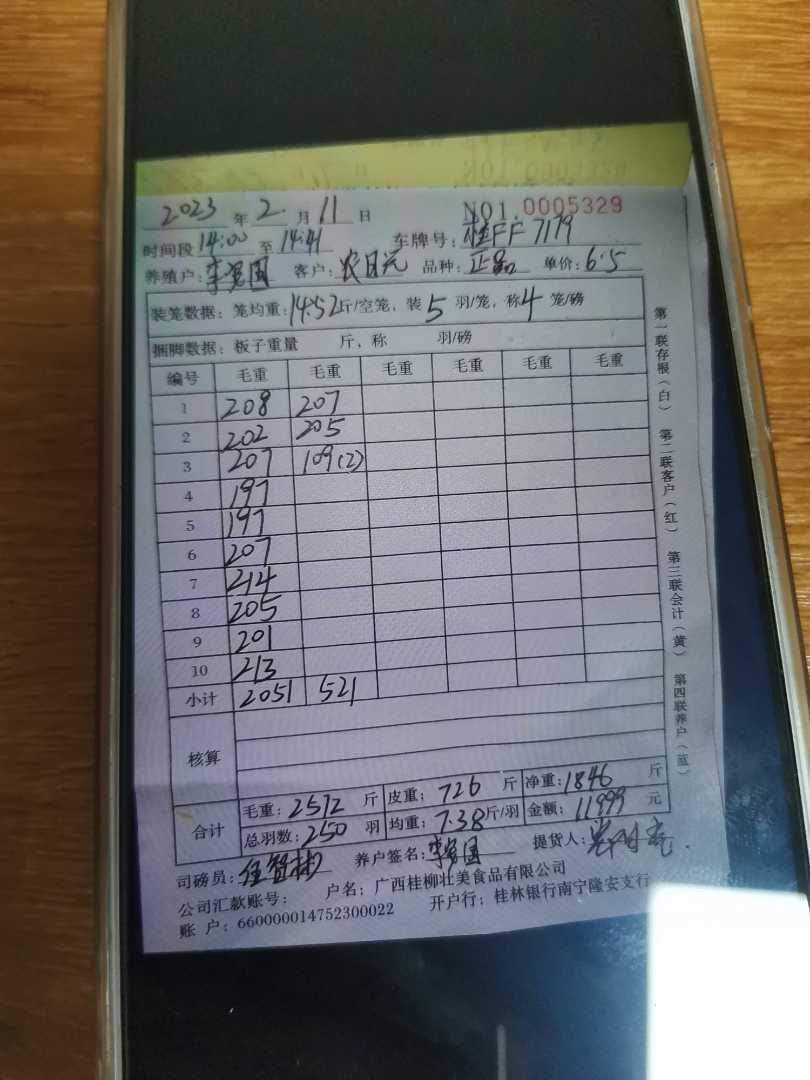 2023 年 2. 月 11 日 NO1.0005329
时间段 14:00 至 14:41 车牌号: 桂FF 7179
养殖户: 客户: 农日元 品种: 正品 单价: 6.5
装笼数据: 笼均重: 14.52 斤/空笼, 装 5 羽/笼, 称 4 笼/磅
捆脚数据: 板子重量 斤, 称 羽/磅
编号 毛重 毛重 毛重 毛重 毛重 毛重
1 208 207
2 202 205
3 207 109(2)
4 197
5 197
6 207
7 214
8 205
9 201
10 213
小计 2051 521
核算
合计 毛重: 2572 斤 皮重: 726 斤 净重: 1846 斤
总羽数: 250 羽 均重: 7.38 斤/羽 金额: 11999 元
司磅员: 养户签名: 提货人:
公司汇款账号: 户名: 广西桂柳壮美食品有限公司
账 户: 660000014752300022 开户行: 桂林银行南宁隆安支行
第一联存根(白) 第二联客户(红) 第三联会计(黄) 第四联养户(蓝)